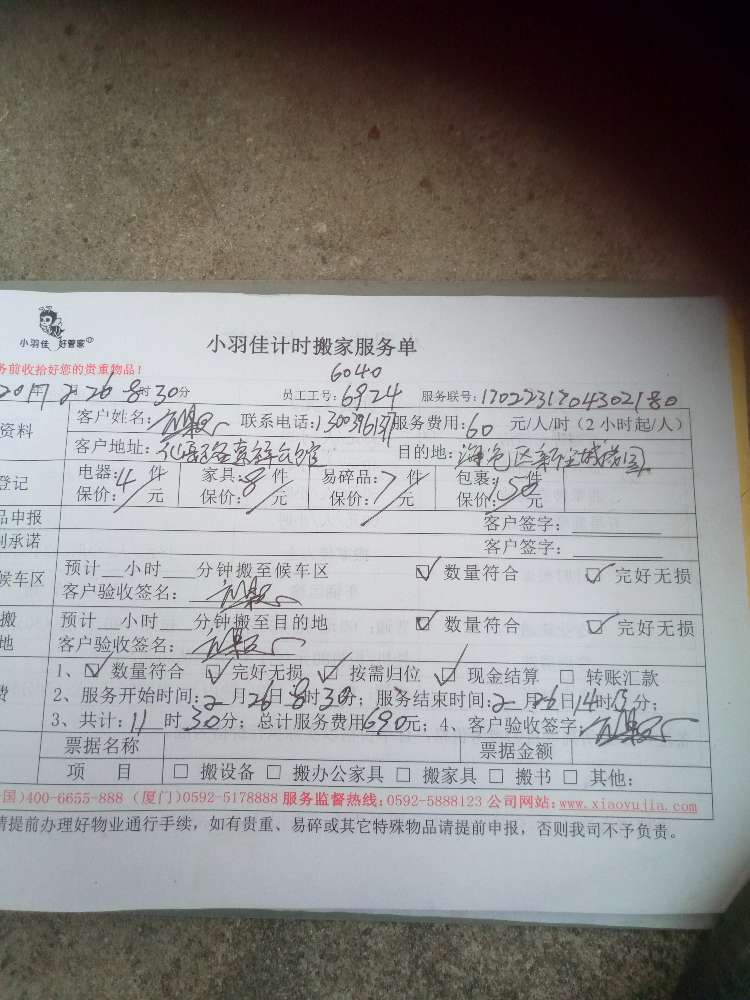 小羽佳 好管家
小羽佳计时搬家服务单
务前收拾好您的贵重物品！
6040
2月26 8时30分 员工工号：6924 服务联号：1702231704302180
资料 客户姓名： 联系电话： 服务费用：60 元/人/时（2小时起/人）
客户地址： 目的地：
登记 电器：4件 家具：8件 易碎品：7件 包裹：50件
保价： 元 保价： 元 保价： 元 保价： 元
品申报 客户签字：
别承诺 客户签字：
候车区 预计 小时 分钟搬至候车区 ☑ 数量符合 ☑ 完好无损
客户验收签名：
搬 预计 小时 分钟搬至目的地 ☑ 数量符合 ☑ 完好无损
地 客户验收签名：
1、☑ 数量符合 ☑ 完好无损 ☑ 按需归位 ☑ 现金结算 □ 转账汇款
费 2、服务开始时间：2月26日8时30分；服务结束时间：2月26日14时15分；
3、共计：11时30分；总计服务费用690元；4、客户验收签字：
票据名称 票据金额
项 目 □ 搬设备 □ 搬办公家具 □ 搬家具 □ 搬书 □ 其他：
国)400-6655-888 (厦门)0592-5178888 服务监督热线:0592-5888123 公司网站:www.xiaoyujia.com
请提前办理好物业通行手续，如有贵重、易碎或其它特殊物品请提前申报，否则我司不予负责。